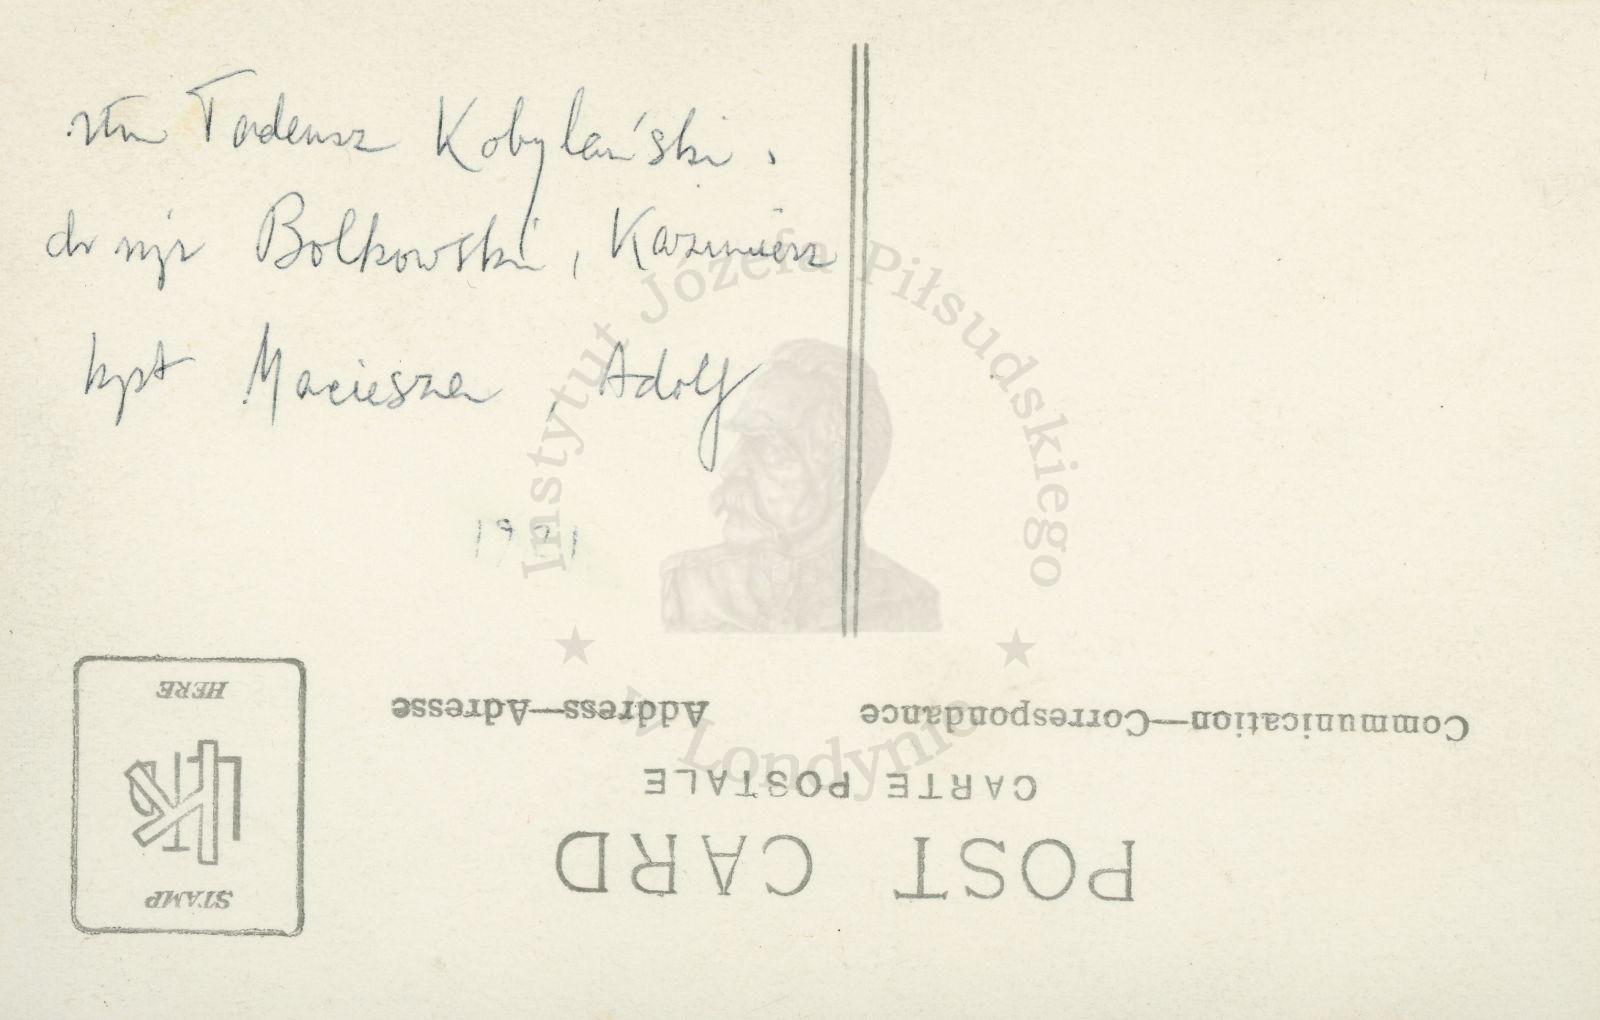 rtm Tadeusz Kobylański.
dr inż Bolkowski, Kazimierz
kpt Maciesza, Adolf
1921
Instytut Józefa Piłsudskiego
w Londynie
HERE
STAMP
Address—Adresse
Communication—Correspondance
CARTE POSTALE
POST CARD